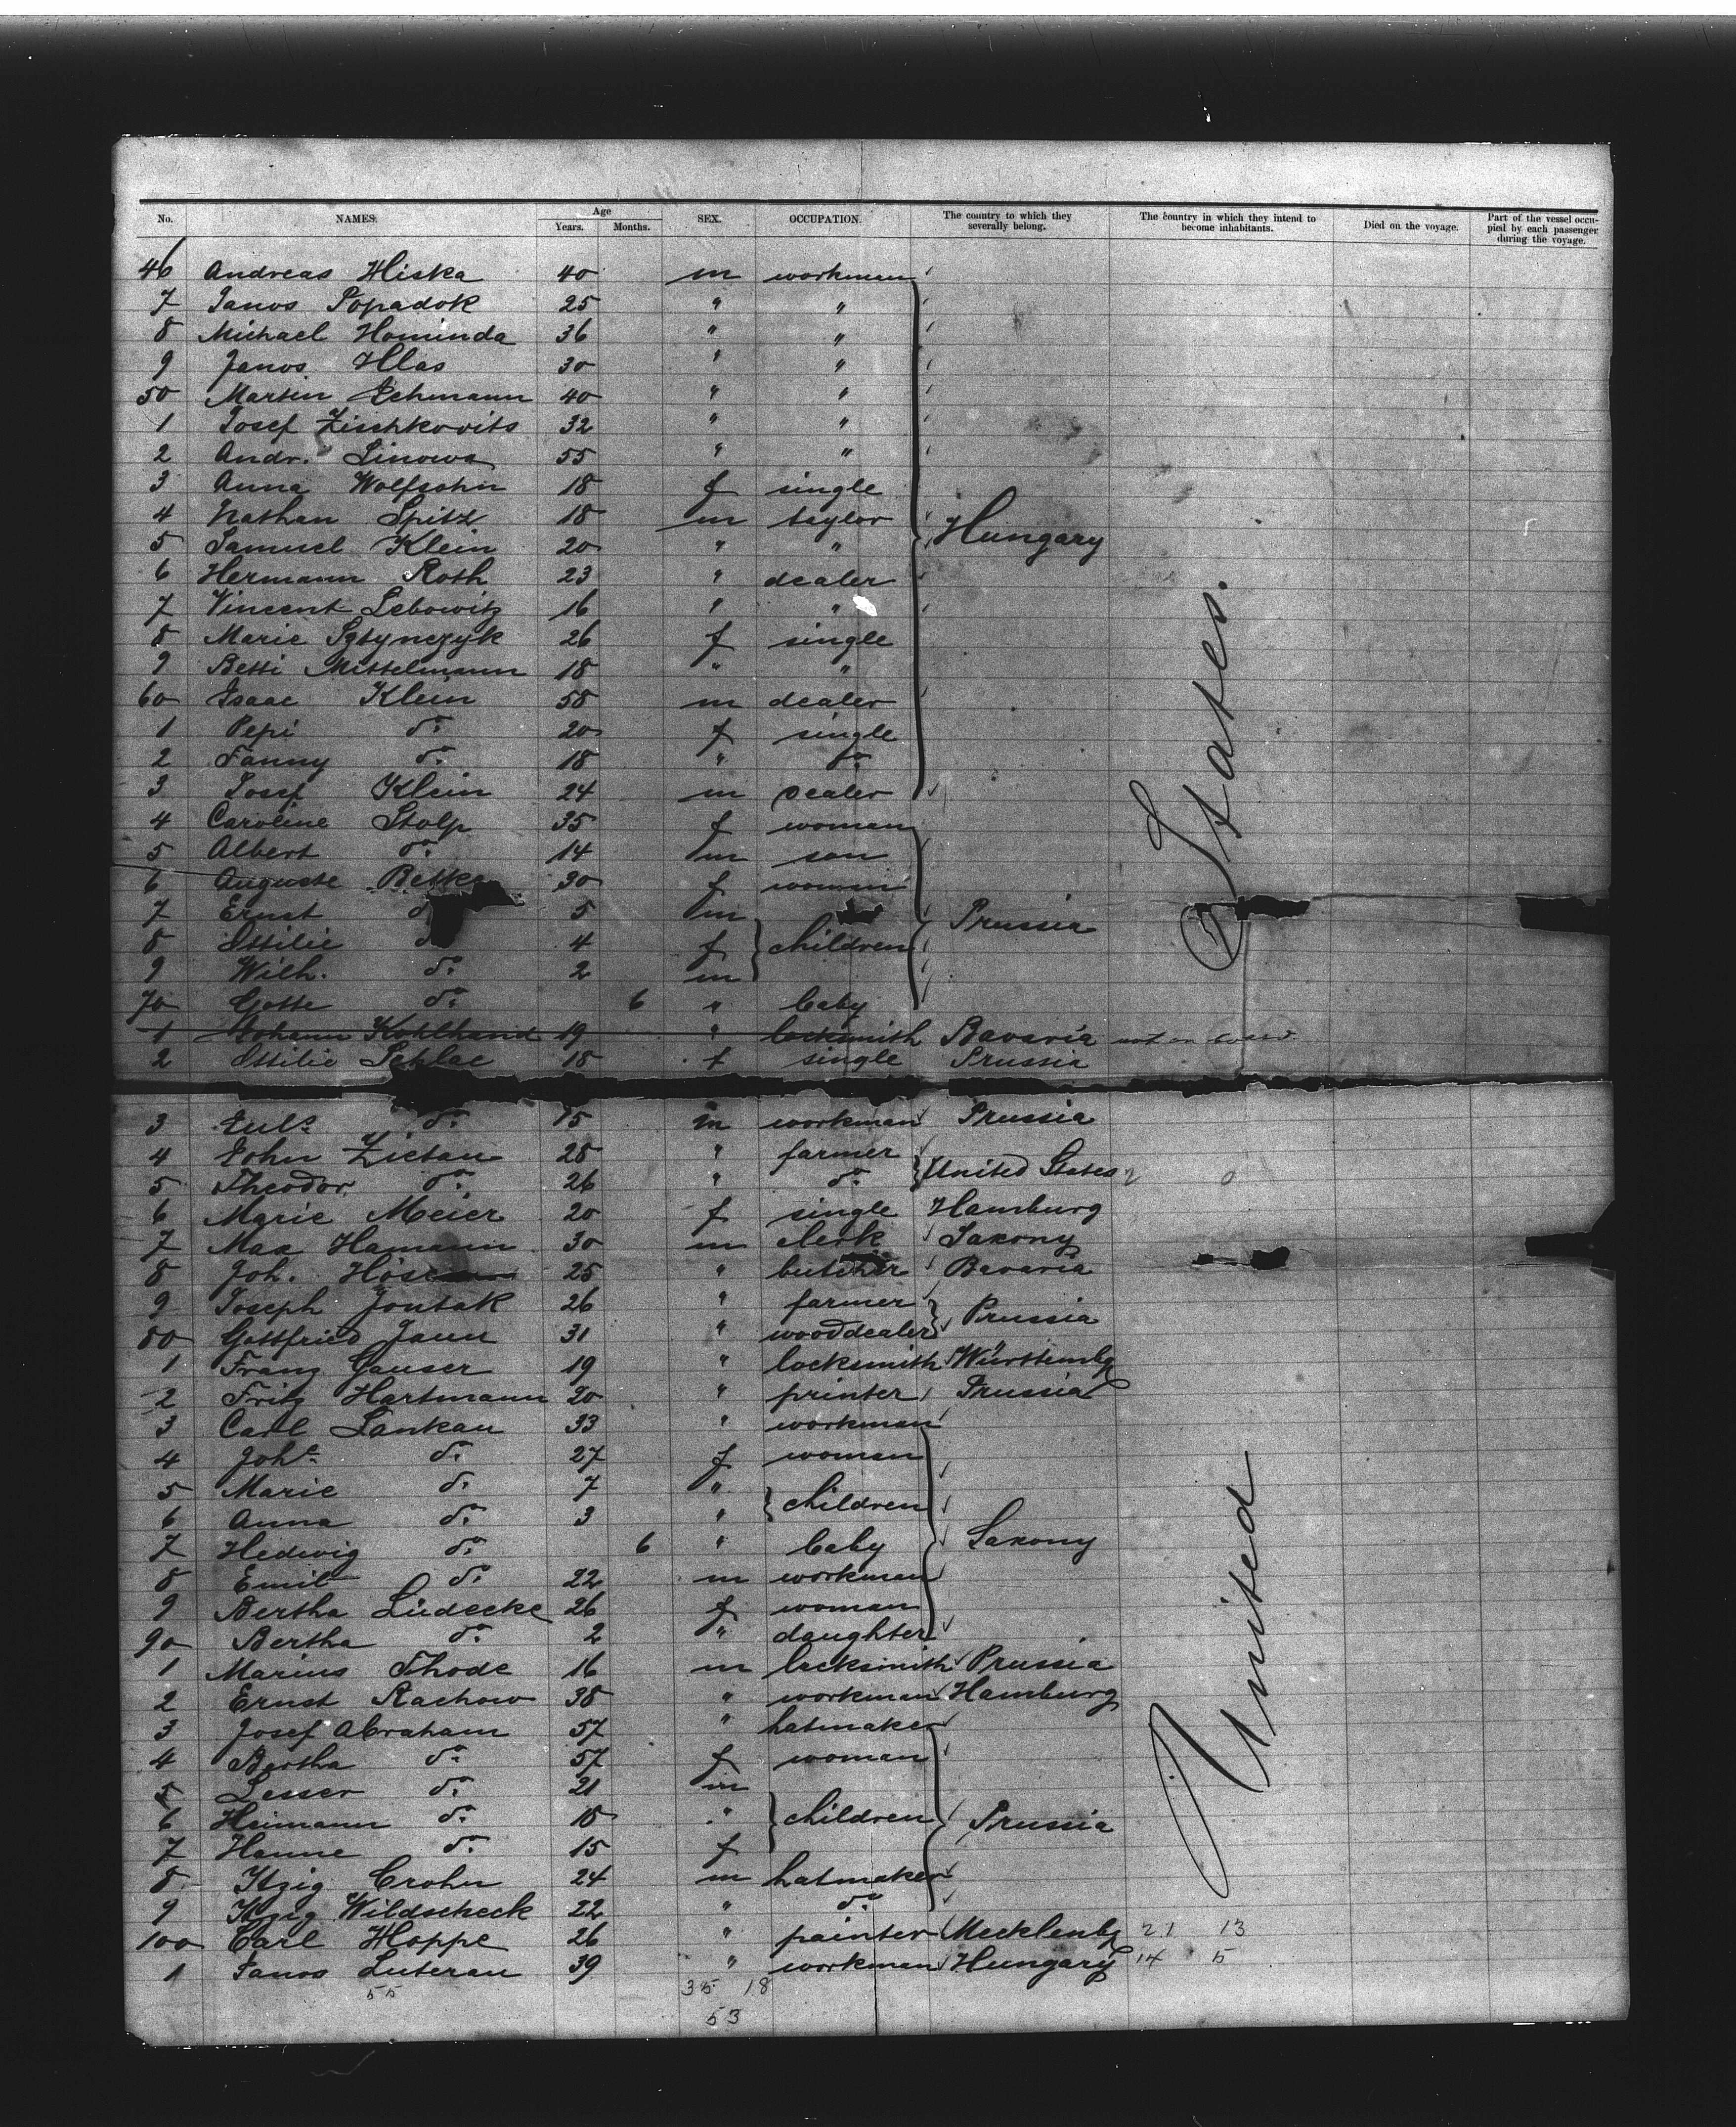 No. NAMES. Age Years. Months. SEX. OCCUPATION. The country to which they severally belong. The country in which they intend to become inhabitants. Died on the voyage. Part of the vessel occupied by each passenger during the voyage.
46 Andreas Hiska 40 m workman
7 Janos Popadok 25 " "
8 Michael Hominda 36 " "
9 Janos Hlas 30 " "
50 Martin Lehmann 40 " "
1 Josef Zischkovits 32 " "
2 Andr. Linowa 55 " "
3 Anna Wolfsohn 18 f single
4 Nathan Spitz 18 m taylor Hungary
5 Samuel Klein 20 " "
6 Hermann Roth 23 " dealer
7 Vincent Lebowitz 16 " "
8 Marie 26 f single
9 Betti Mittelmann 18 " "
60 Isaac Klein 58 m dealer
1 Pepi do. 20 f single
2 Fanny do. 18 " do.
3 Josef Klein 24 m dealer
4 Caroline Stolp 35 f woman
5 Albert do. 14 m son
6 Auguste Betke 30 f woman
7 Ernst d 5 m Prussia
8 Ottilie d 4 f children
9 Wilh. do. 2 m
70 Gotte do. 6 " baby
1 Johann Kohlhand 19 " locksmith Bavaria not on board
2 Ottilie Schlae 18 f single Prussia
3 Jul. do. 15 m workman Prussia
4 John Zietan 28 " farmer
5 Theodor do. 26 " do. United States
6 Marie Meier 20 f single Hamburg
7 Max Hamann 30 m clerk Saxony
8 Joh. 25 " butcher Bavaria
9 Joseph Jontak 26 " farmer Prussia
80 Gottfried Jann 31 " wooddealer
1 Franz Gauser 19 " locksmith Württembg
2 Fritz Hartmann 20 " printer Prussia
3 Carl Lankau 33 " workman
4 Joh. do. 27 f woman
5 Marie do. 7 " children
6 Anna do. 3 "
7 Hedwig do. 6 " baby Saxony
8 Emil do. 22 m workman
9 Bertha Lüdecke 26 f woman
90 Bertha do. 2 " daughter
1 Marius Thode 16 m locksmith Prussia
2 Ernst Rachow 38 " workman Hamburg
3 Josef Abraham 57 " hatmaker
4 Bertha do. 57 f woman
5 Lesser do. 21 m
6 Heimann do. 18 " children Prussia
7 Hanne do. 15 f
8 Itzig Crohn 24 m hatmaker
9 Itzig Wildscheck 22 " do.
100 Carl Hoppe 26 " painter Mecklenbg 21 13
1 Janos Luterau 39 " workman Hungary 14 5
55 35 18
53
United States.